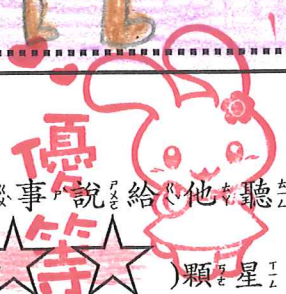 優等
事說給他聽
)顆星